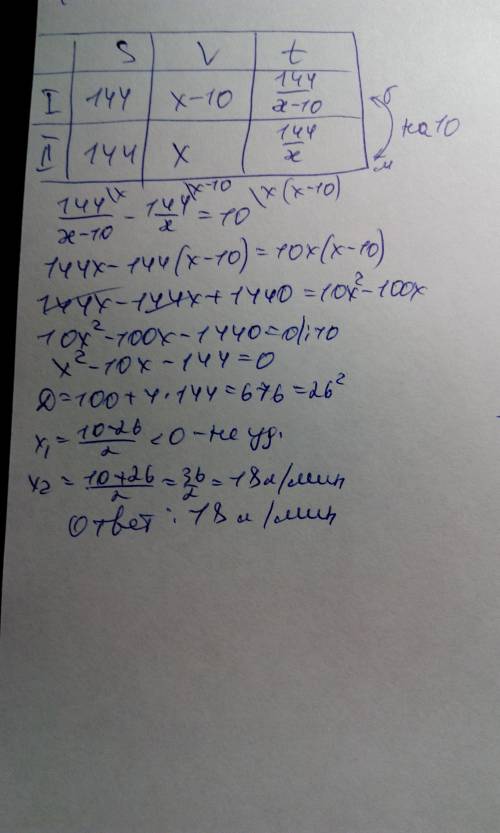 S V t
I 144 x-10 144/(x-10) б
II 144 x 144/x м на 10
144\x/(x-10) - 144\x-10/x = 10\x(x-10)
144x-144(x-10)=10x(x-10)
144x-144x+1440=10x²-100x
10x²-100x-1440=0|:10
x²-10x-144=0
D=100+4·144=676=26²
x₁=(10-26)/2<0-не уд.
x₂=(10+26)/2=36/2=18л/мин
Ответ: 18л/мин